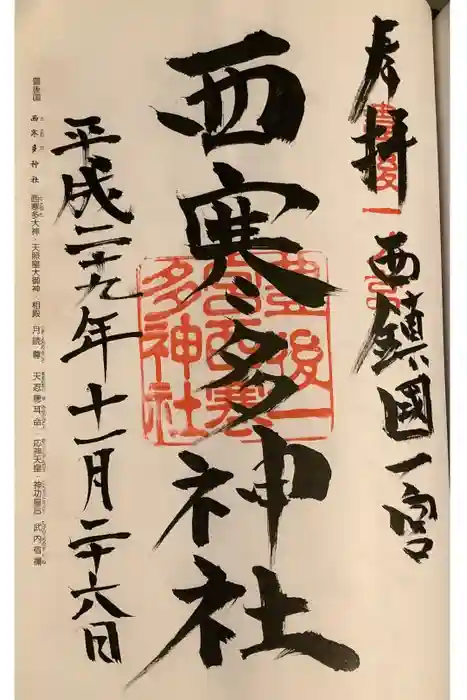 奉拝 西鎮國一宮
豊後一之宮
西寒多神社
豊後一
宮西寒
多神社
平成二十九年十一月二十六日
豊後国 西寒多神社 西寒多大神・天照皇大御神 相殿 月読尊 天忍穂耳命 応神天皇・神功皇后 武内宿禰